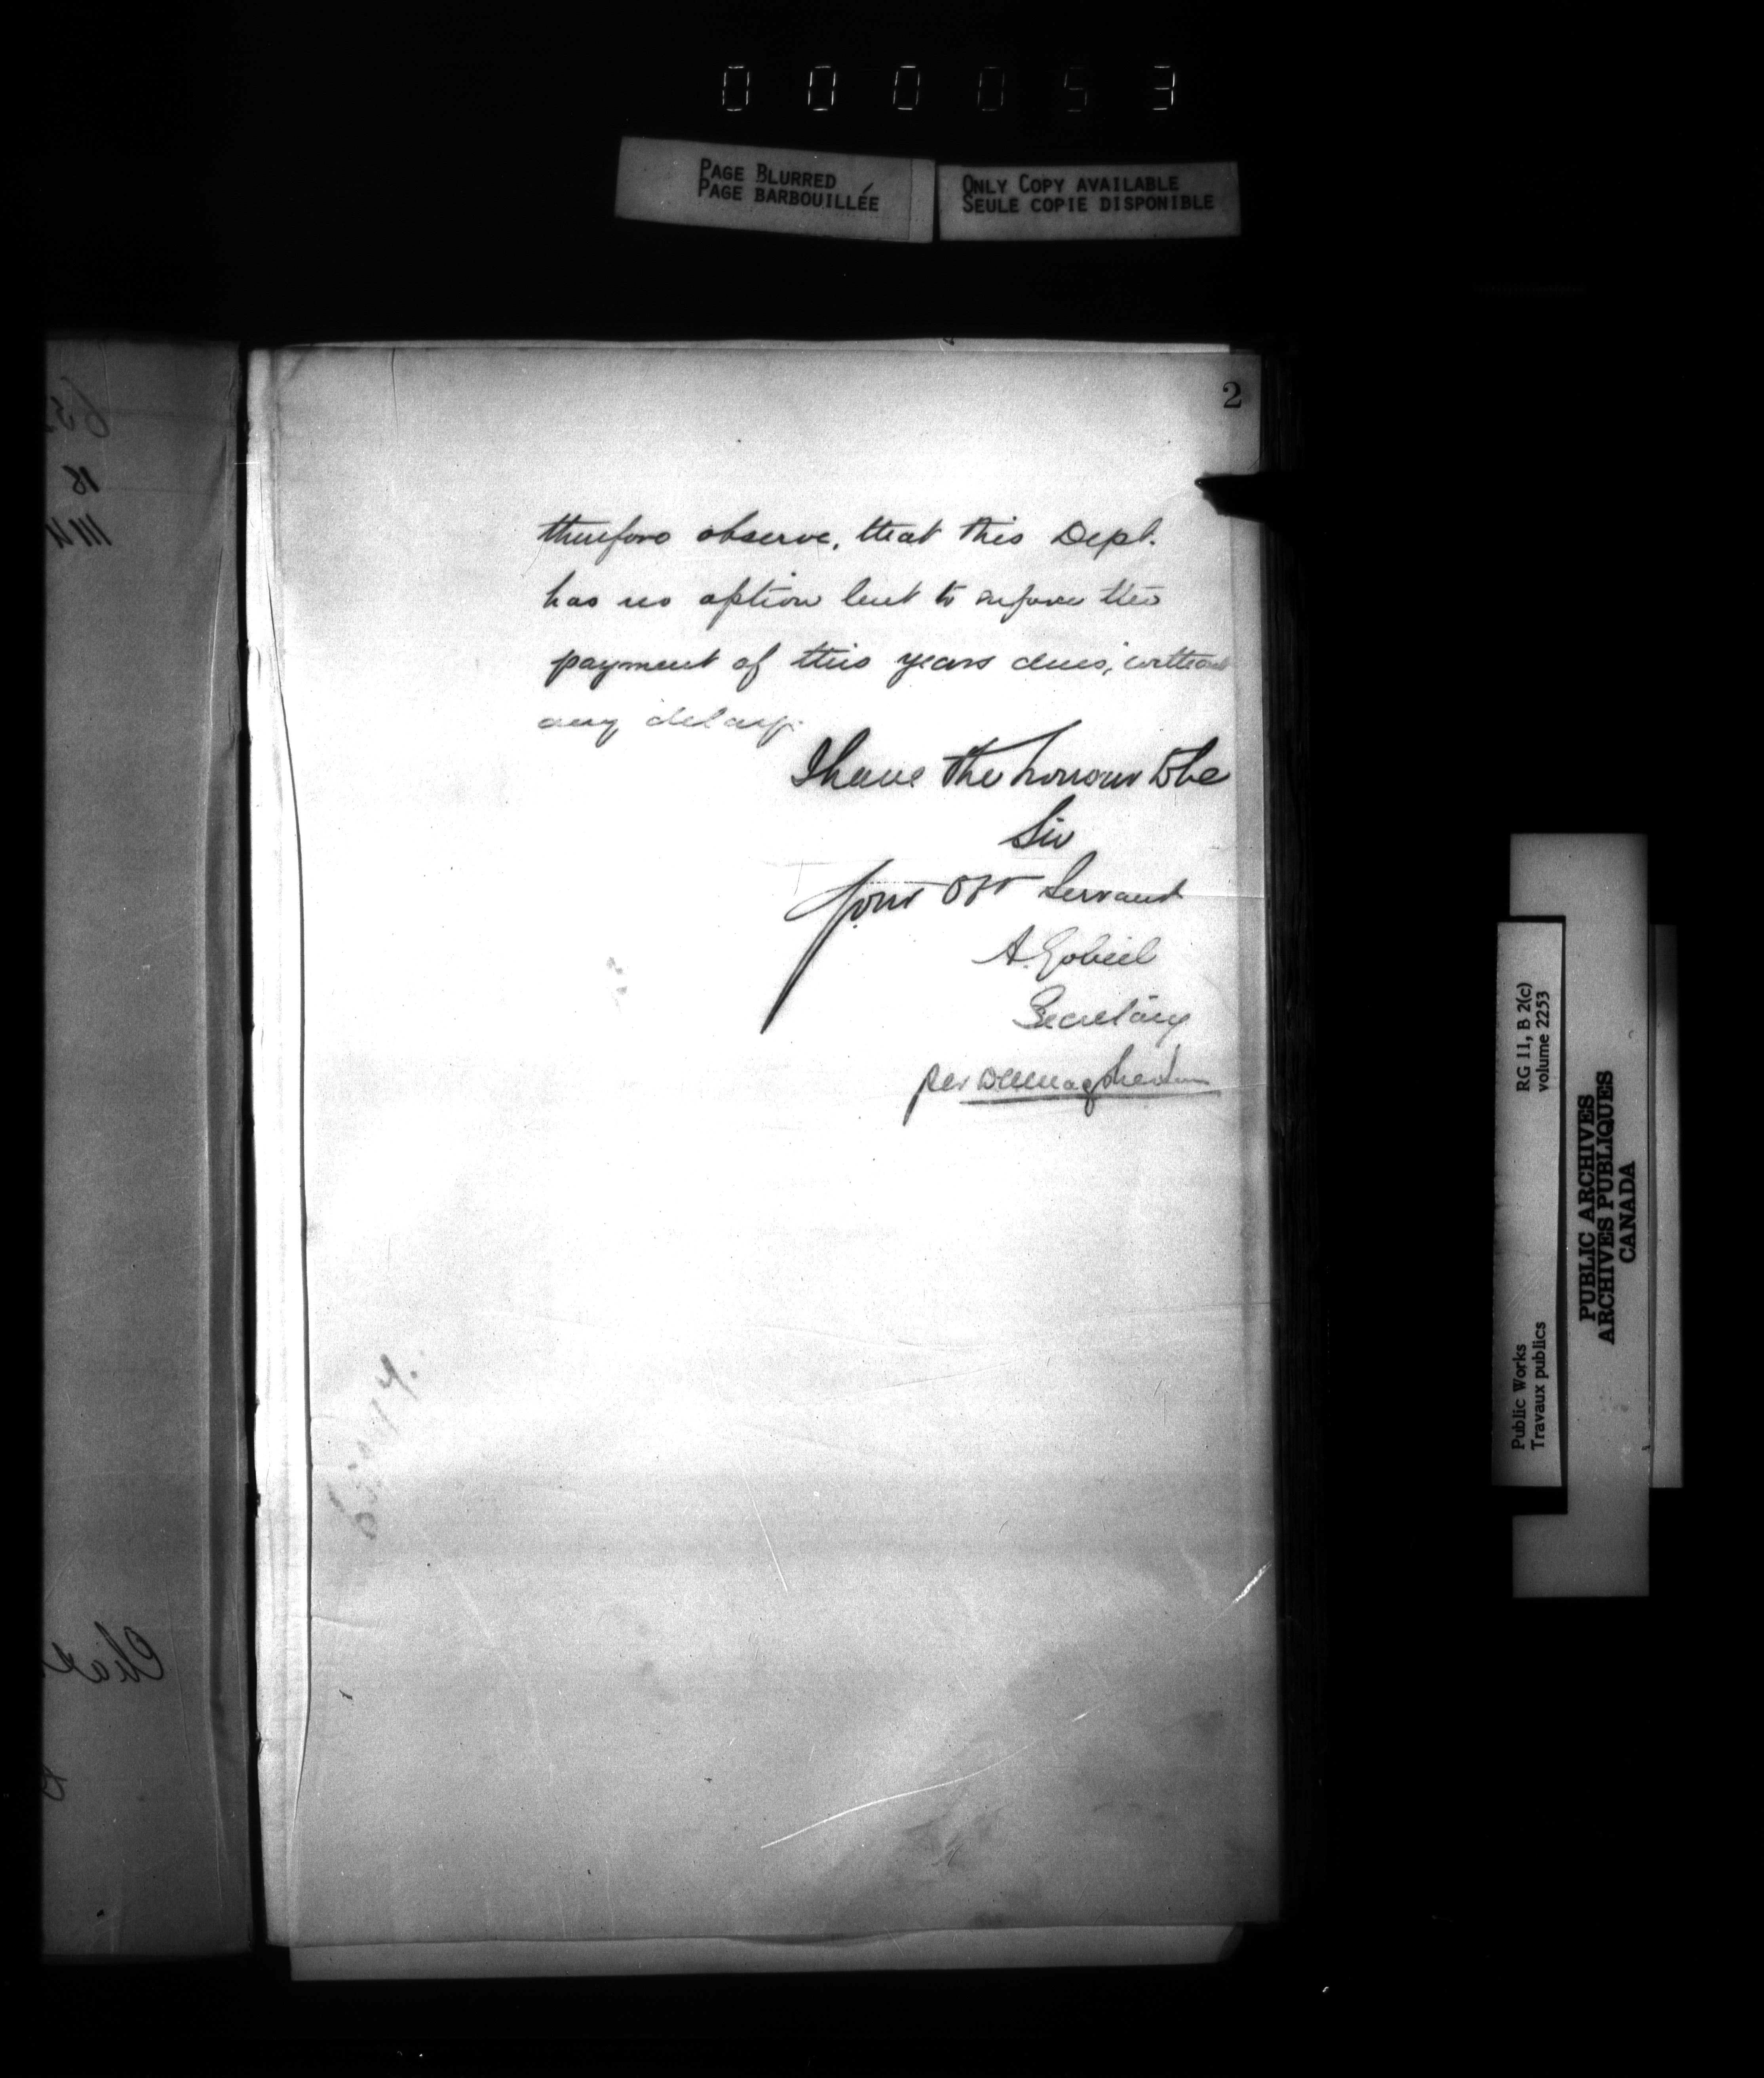 000053
PAGE BLURRED
PAGE BARBOUILLÉE
ONLY COPY AVAILABLE
SEULE COPIE DISPONIBLE
2
therefore observe, that this Dept.
has no option but to enforce the
payment of this years dues, without
any delay.
I have the honour to be
Sir
Your Obt Servant
A. Gobeil
Secretary
per
RG 11, B 2(c)
volume 2253
Public Works
Travaux publics
PUBLIC ARCHIVES
ARCHIVES PUBLIQUES
CANADA